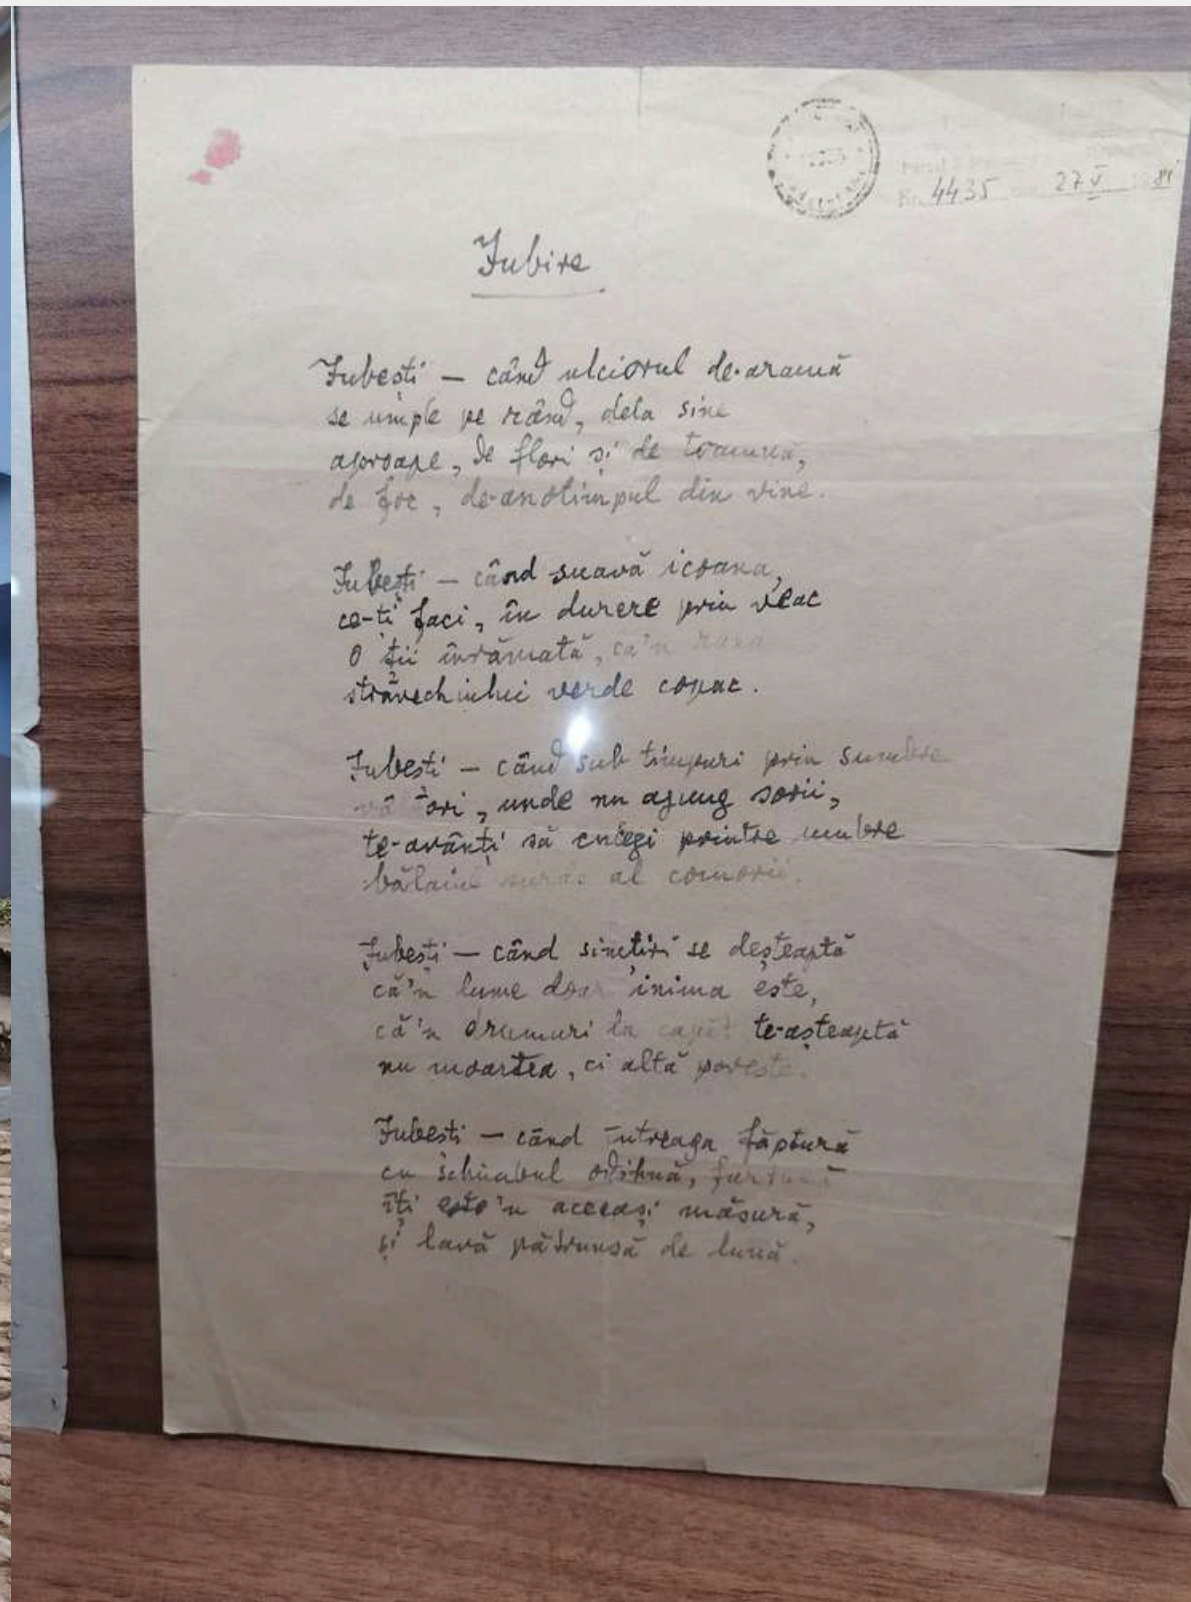 Nr. 4435 27 V 1981
Iubire
Iubești — când ulciorul de-aramă
se umple pe rând, dela sine
aproape, de flori și de toamnă,
de foc, de-anotimpul din vine.
Iubești — când suavă icoana,
ce-ți faci, în durere prin veac
o ții înrămată, ca'n rana
străvechiului verde copac.
Iubești — când sub timpuri prin sumbre
vâltori, unde nu ajung sorii,
te-avânți să culegi printre umbre
bălaiul surâs al comorii.
Iubești — când simțiri se deșteaptă
că'n lume doar inima este,
că'n drumuri la capăt te-așteaptă
nu moartea, ci altă poveste.
Iubești — când întreaga făptură
cu schimbul odihnă, furtună
îți este'n aceeași măsură,
și lavă pătrunsă de lună.